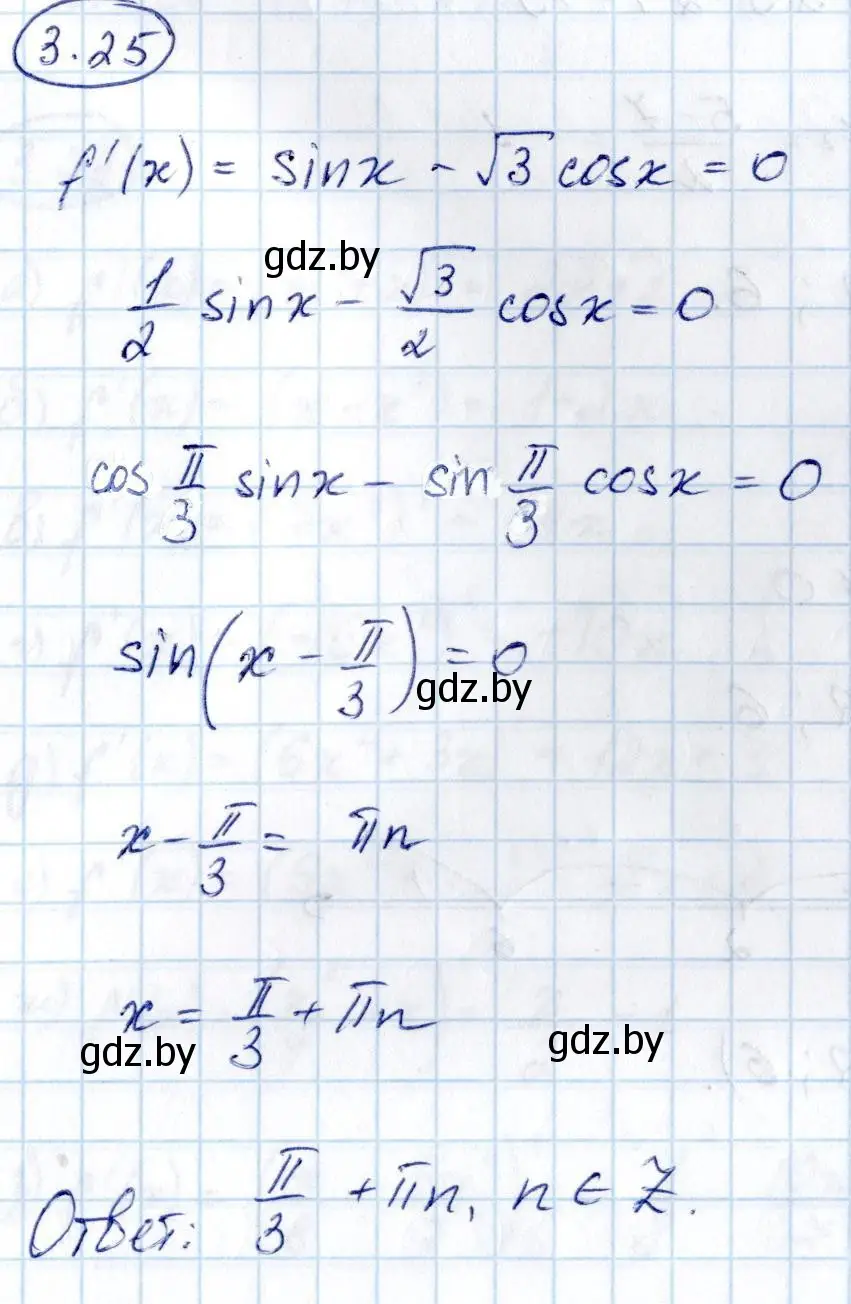 3.25
f'(x) = sinx - √3 cosx = 0
gdz.by
1/2 sinx - √3/2 cosx = 0
cos π/3 sinx - sin π/3 cosx = 0
sin(x - π/3) = 0
gdz.by
x - π/3 = πn
x = π/3 + πn
gdz.by gdz.by
Ответ: π/3 + πn, n ∈ Z.